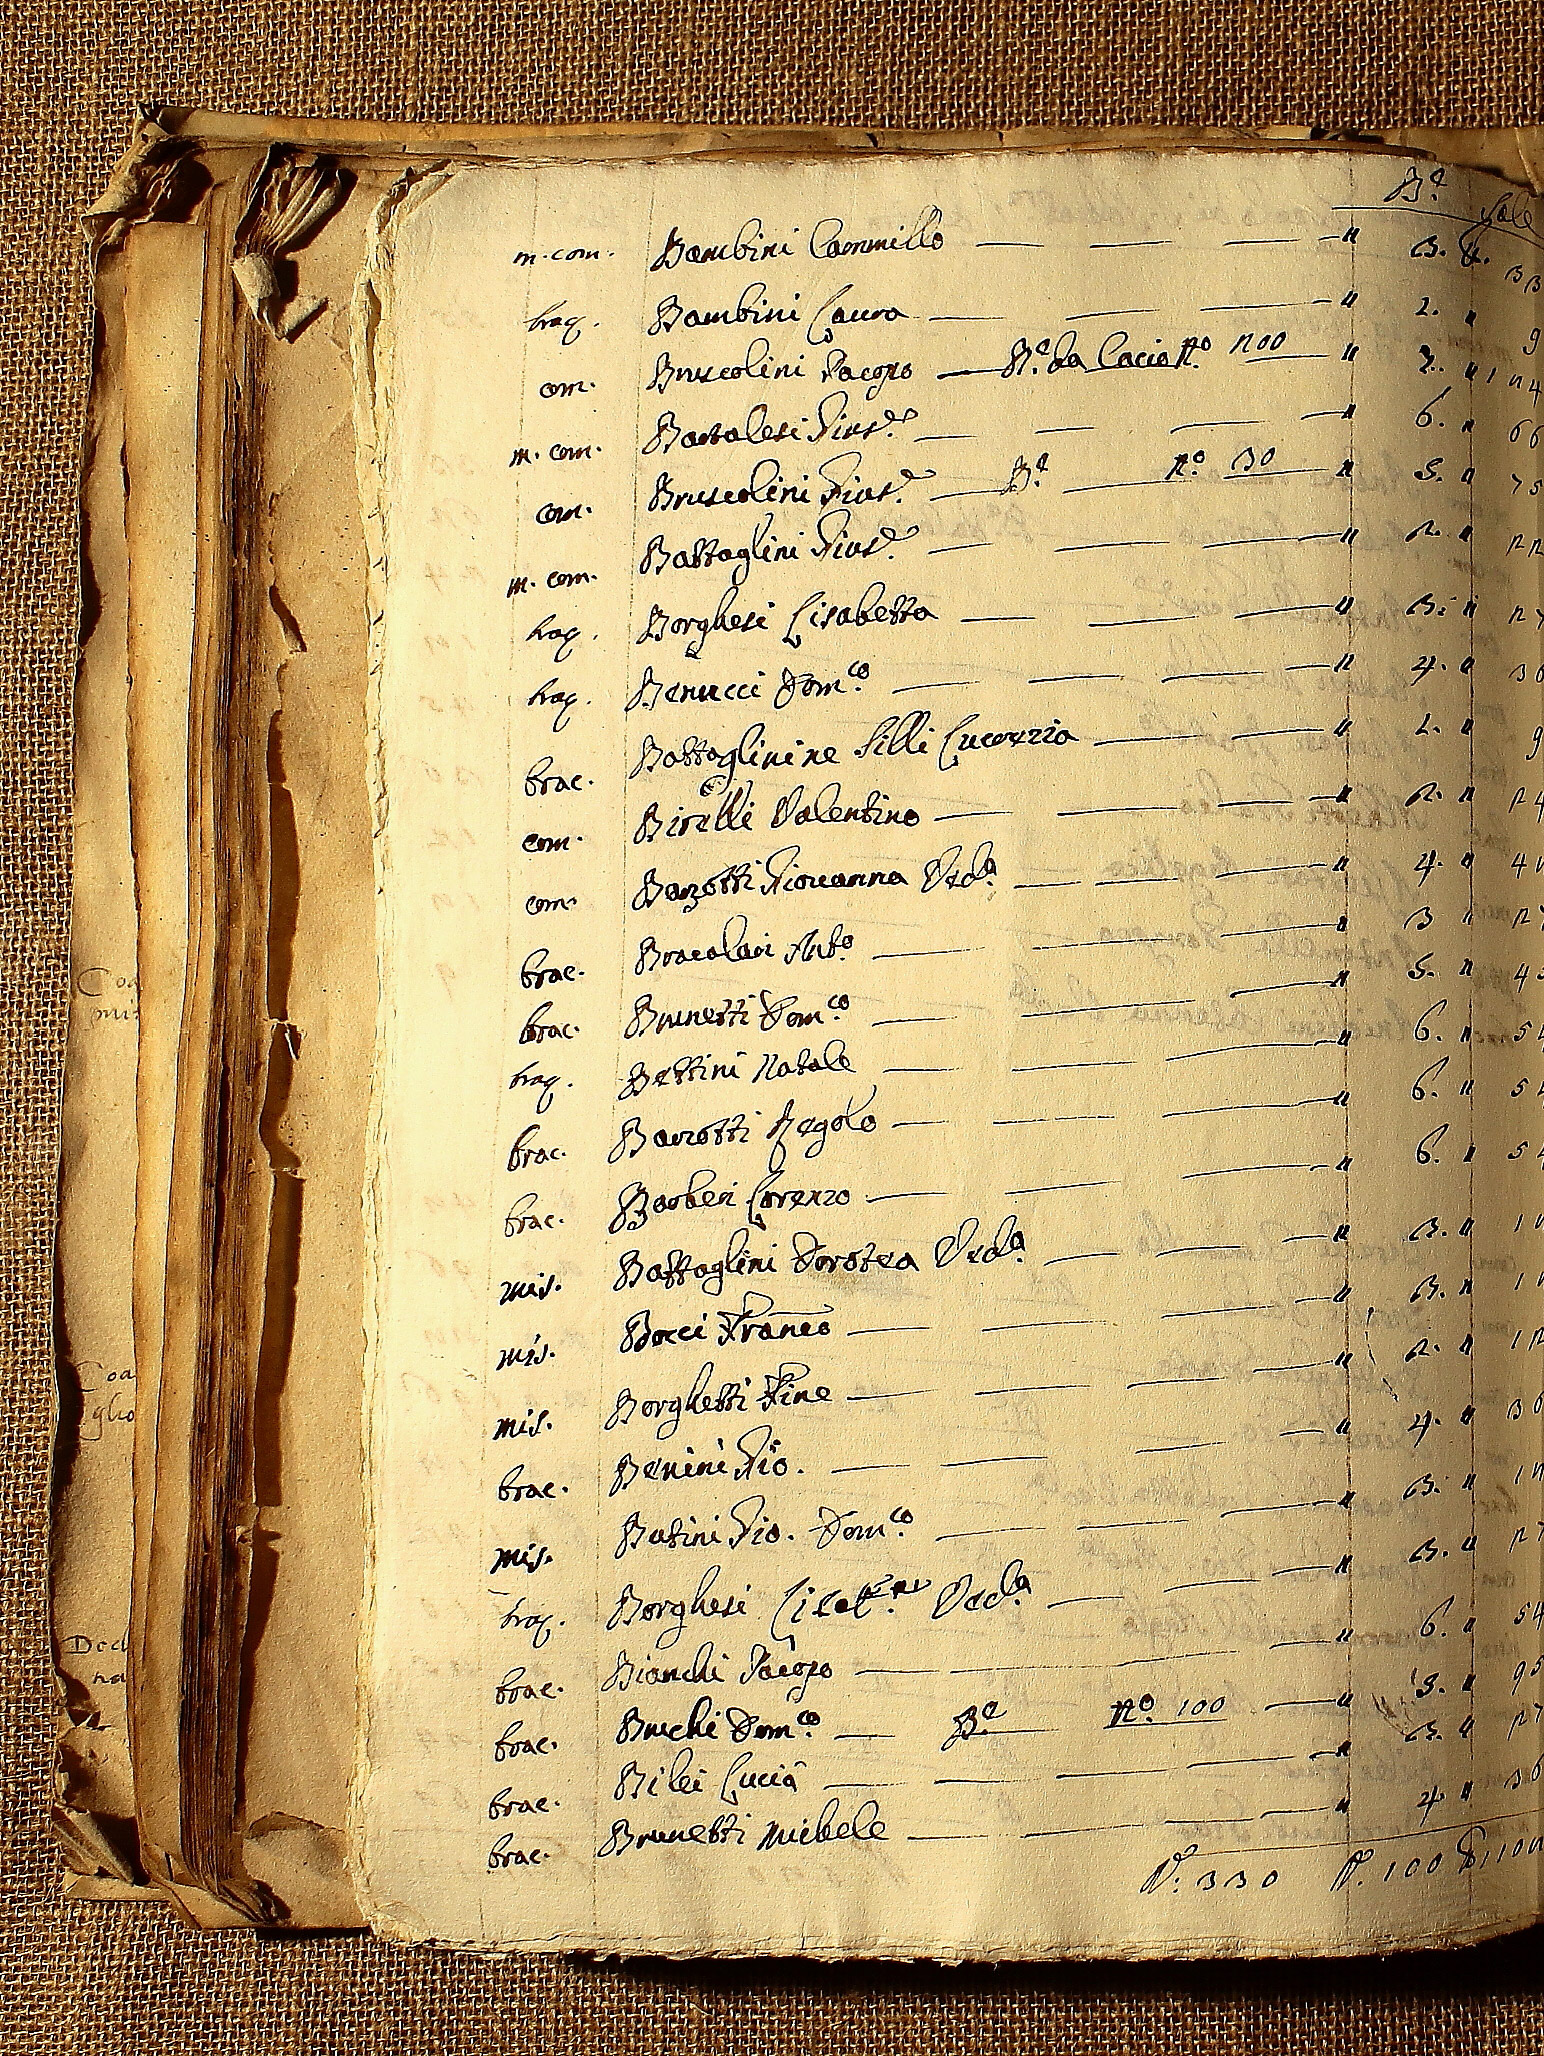 Be Sale
m. com. Bambini Cammillo " 3. "
braq. Bambini Laura " 1. " 9
com. Bruscolini Jacopo Be da Cacio No. 200 " 7. " 124
m. com. Bartalesi Giuse. " 6. " 66
com. Bruscolini Giuse. Be No. 30 " 5. " 75
m. com. Battaglini Giuse. " 2. " 22
braq. Borghesi Lisabetta " 3. " 27
braq. Benucci Domco. " 4. " 36
brac. Battaglini ne Silli Lucrezia " 1. " 9
com. Birelli Valentino " 2. " 24
com. Barzotti Giovanna Veda. " 4. "
brac. Bracalari Anto. " 3 " 27
brac. Brunetti Domco. " 5. " 45
braq. Bettini Natale " 6. " 54
brac. Barzotti Regolo " 6. " 54
brac. Barberi Lorenzo " 6. " 54
mis. Battaglini Dorotea Veda. " 3. "
mis. Bocci Franco " 3. "
mis. Borghetti Fine " 2. " 12
brac. Benini Gio. " 4. " 36
mis. Batini Gio. Domco. " 3. "
braq. Borghesi Veda. " 3. " 27
brac. Bianchi Jacopo " 6. " 54
brac. Buchi Domco. Be No. 100 " 5. " 95
brac. Bilei Lucia " 3. " 27
brac. Brunetti Michele " 4 " 36
N. 330 N. 100